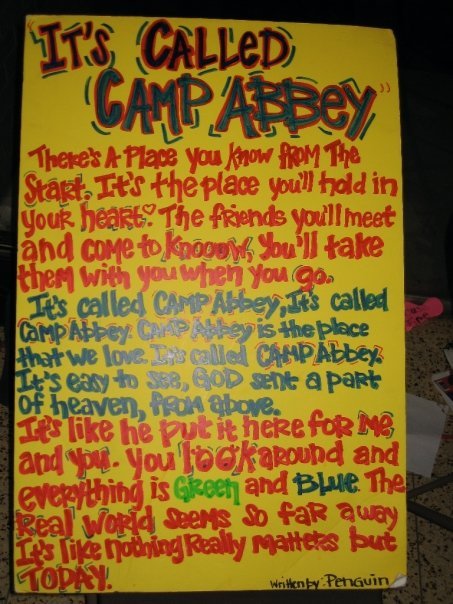 "It's Called
Camp Abbey"
There's A Place you know from The
Start. It's the place you'll hold in
your heart♡ The friends you'll meet
and come to knooow, You'll take
them with you when you go.
It's called CAMP Abbey, It's called
Camp Abbey. CAMP Abbey is the place
that we love. It's called CAMP Abbey.
It's easy to see, GOD sent a part
of heaven, from above.
It's like he put it here for Me
and you. You look around and
everything is Green and BLUE. The
Real World seems so far away
It's like nothing Really matters but
TODAY.
Written by: Penguin